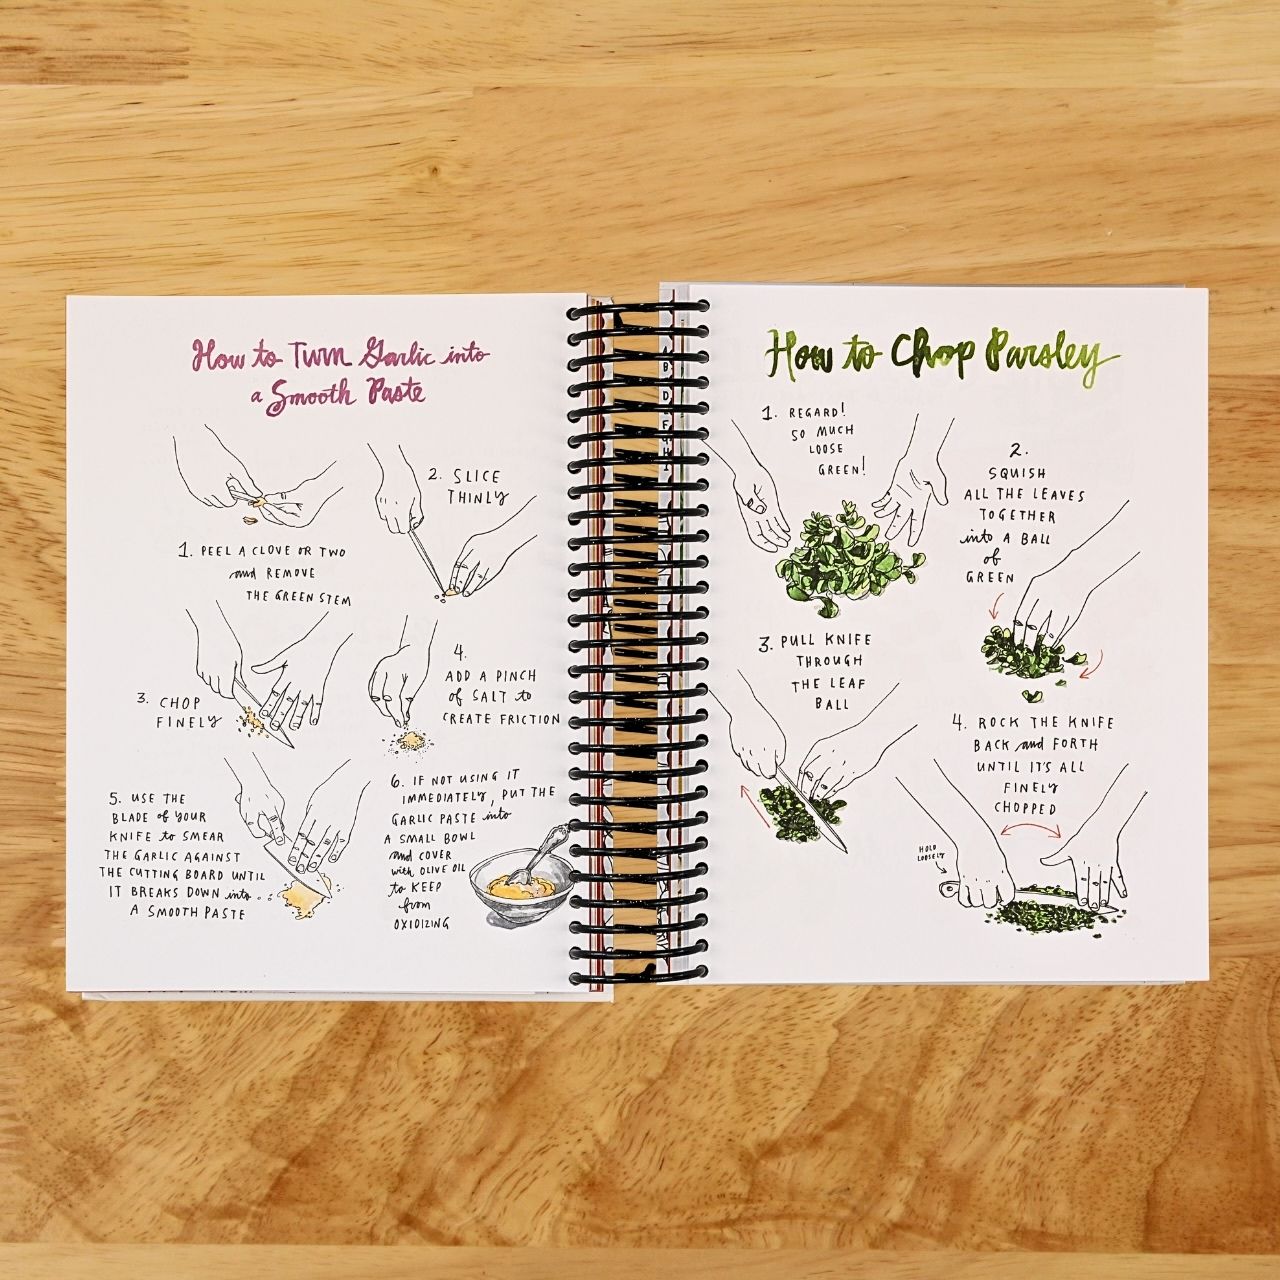 How to Turn Garlic into
a Smooth Paste
1. PEEL A CLOVE OR TWO
and REMOVE
THE GREEN STEM
2. SLICE
THINLY
3. CHOP
FINELY
4.
ADD A PINCH
of SALT to
CREATE FRICTION
5. USE THE
BLADE of YOUR
KNIFE to SMEAR
THE GARLIC AGAINST
THE CUTTING BOARD UNTIL
IT BREAKS DOWN into
A SMOOTH PASTE
6. IF NOT USING IT
IMMEDIATELY, PUT THE
GARLIC PASTE into
A SMALL BOWL
and COVER
with OLIVE OIL
to KEEP
from
OXIDIZING
How to Chop Parsley
1. REGARD!
SO MUCH
LOOSE
GREEN!
2.
SQUISH
ALL THE LEAVES
TOGETHER
into A BALL
of
GREEN
3. PULL KNIFE
THROUGH
THE LEAF
BALL
4. ROCK THE KNIFE
BACK and FORTH
UNTIL IT'S ALL
FINELY
CHOPPED
HOLD
LOOSELY